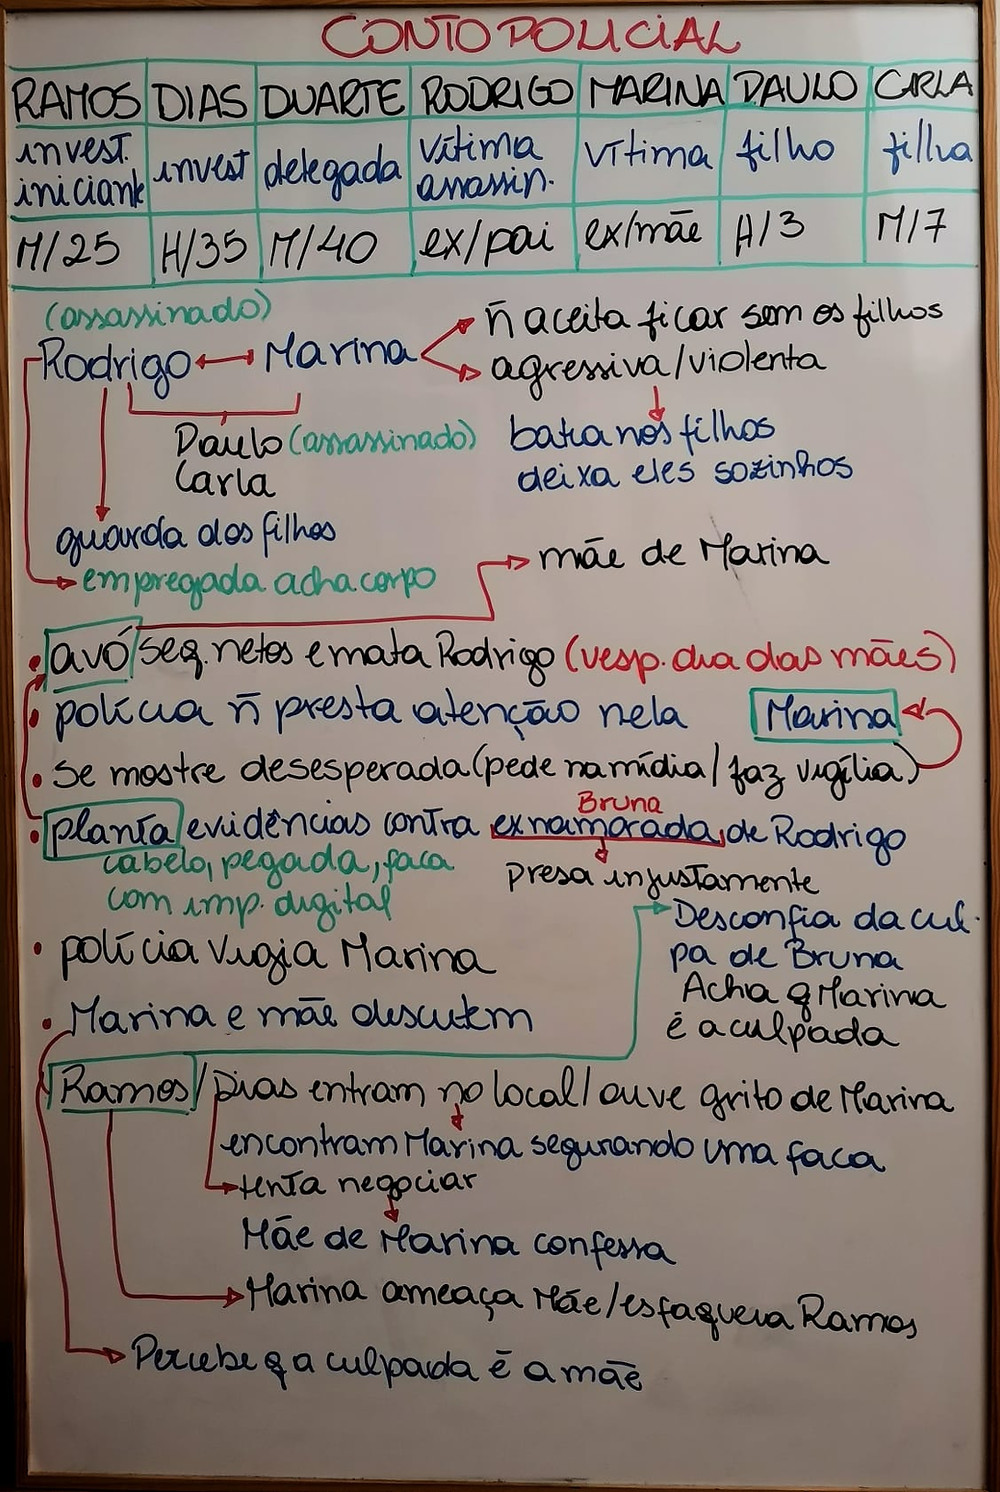 CONTO POLICIAL
RAMOS DIAS DUARTE RODRIGO MARINA PAULO CARLA
invest. iniciante invest delegada vítima assassin. vítima filho filha
M/25 H/35 M/40 ex/pai ex/mãe H/3 M/7
(assassinado)
Rodrigo Marina
ñ aceita ficar sem os filhos
agressiva/violenta
batia nos filhos
deixa eles sozinhos
Paulo (assassinado)
Carla
guarda dos filhos
empregada acha corpo
mãe de Marina
• avó seq. netos e mata Rodrigo (vesp. dia das mães)
• polícia ñ presta atenção nela Marina
• se mostre desesperada (pede na mídia/faz vigília)
Bruna
• planta evidências contra ex namorada de Rodrigo
cabelo, pegada, faca
com imp. digital
presa injustamente
• polícia vigia Marina
Desconfia da cul-
pa de Bruna
Acha q Marina
é a culpada
• Marina e mãe discutem
Ramos/Dias entram no local/ouve grito de Marina
encontram Marina segurando uma faca
tenta negociar
Mãe de Marina confessa
Marina ameaça Mãe/esfaqueia Ramos
Percebe q a culpada é a mãe